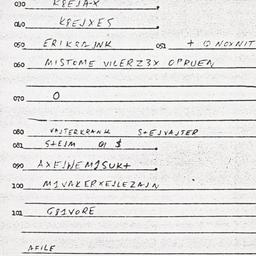 030 K8EJAX
040 K8EJXES
050 ERIKSAJNK 051 + Q NOXNIT
060 MISTOME VILERZ3X OPRUEN
070 O
080 VAJTERKRANK S+EJVAJTER
081 S+EIM QI $
090 AXEJWEMJSUK+
100 MJVAKERXEJLEZAJN
101 G8IVORE
AFILE